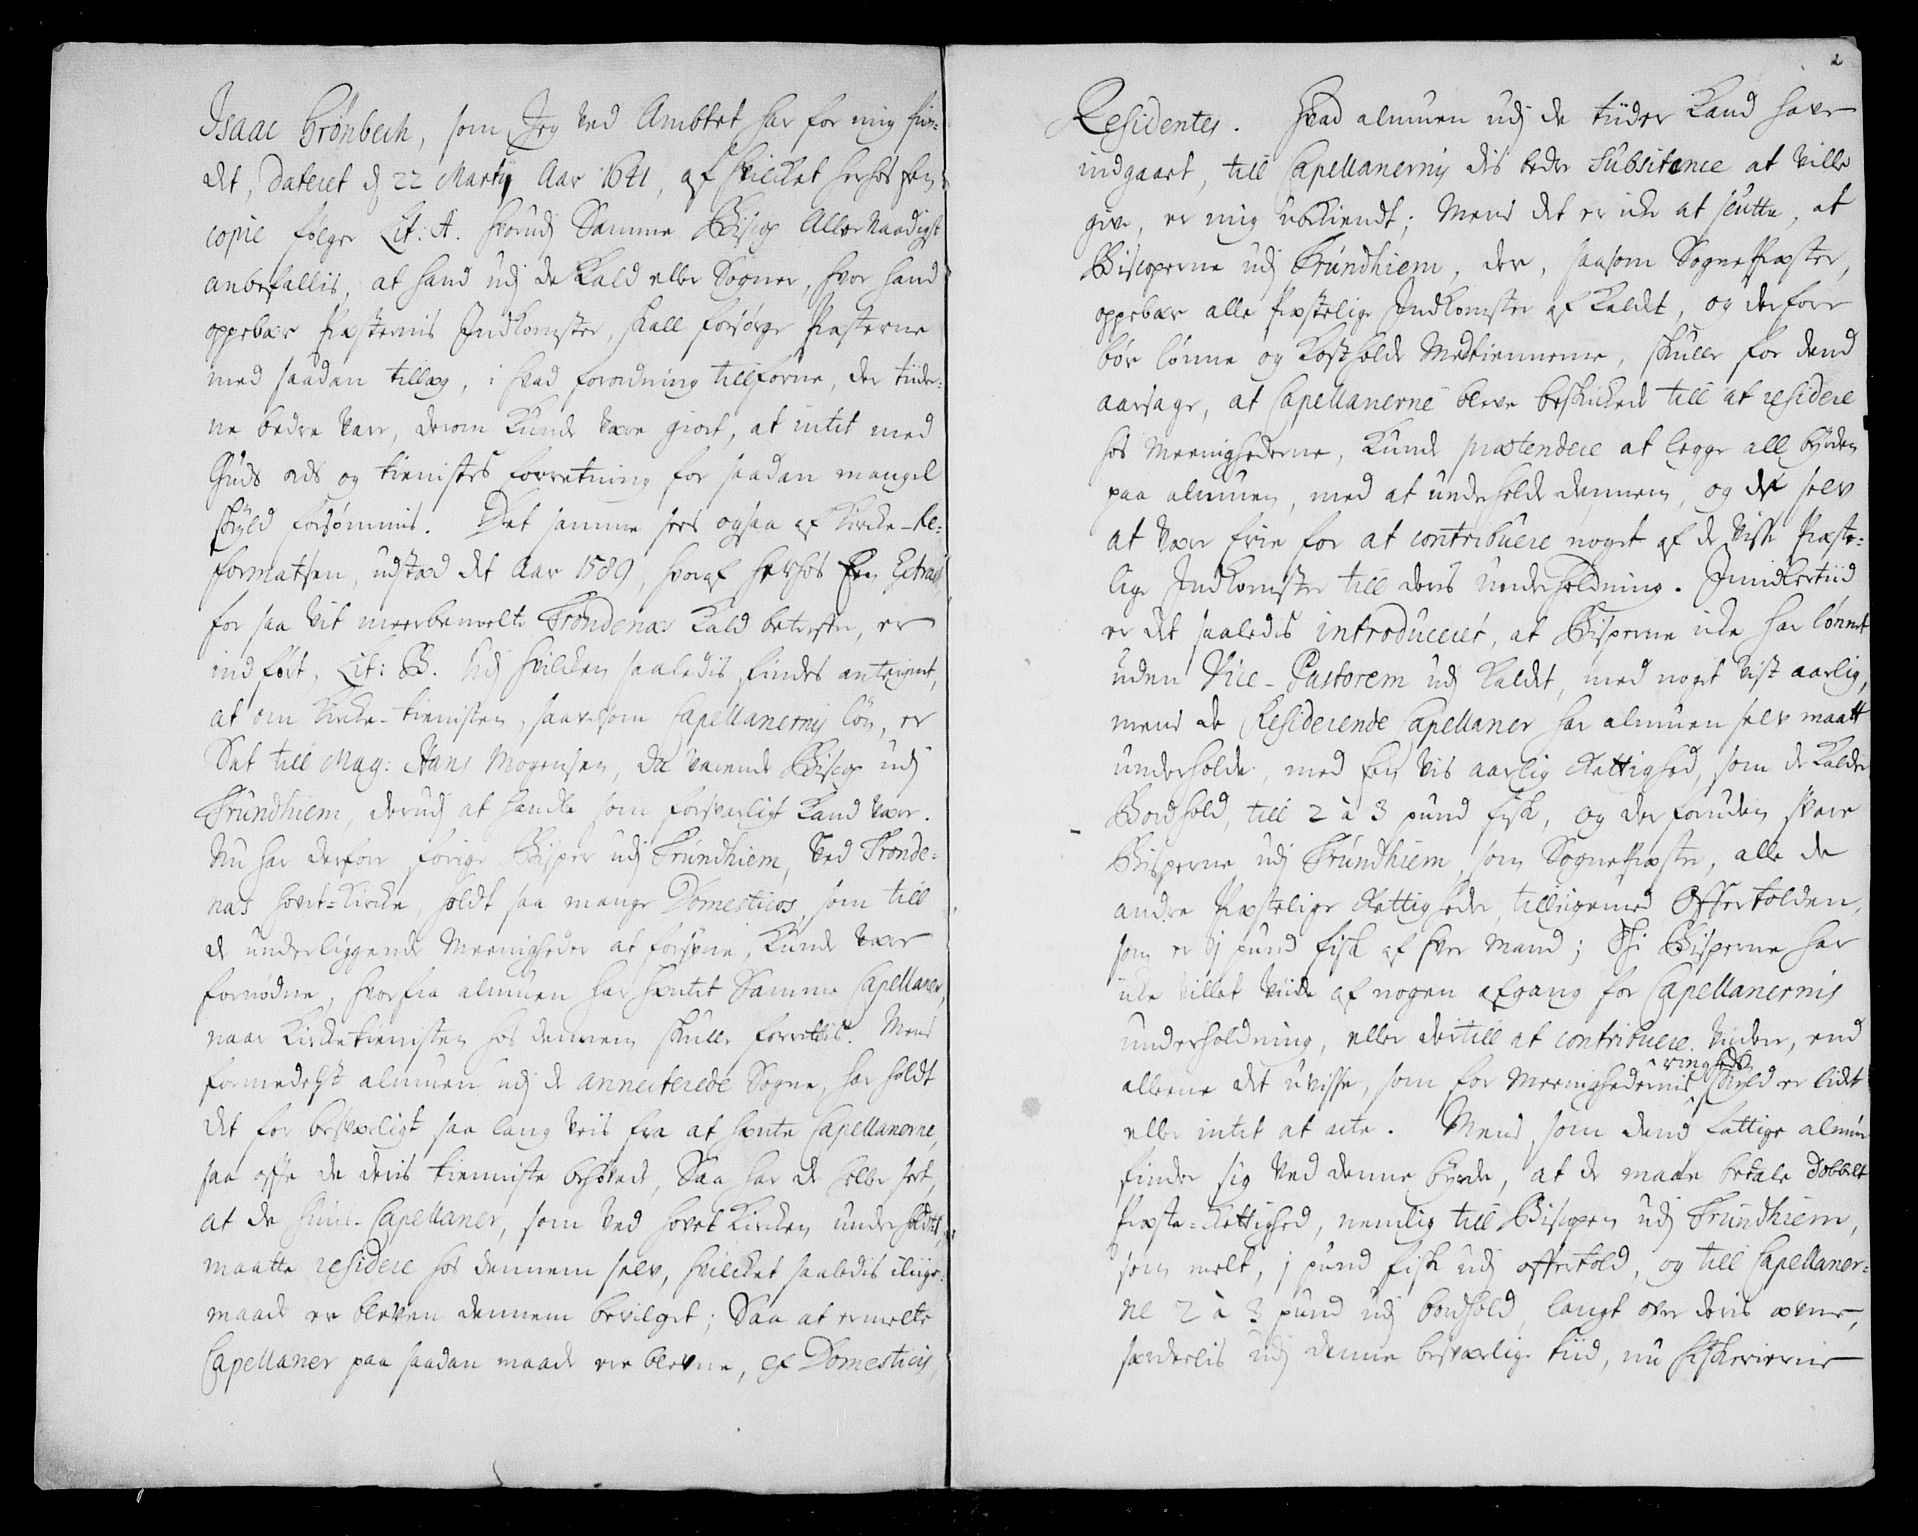 Isaac Grønbech, som Jeg ved Ambtet har for mig fun-
det, dateret d 22 Martij Aar 1641, af hvilcket herhos een
copie følger Lit: A. hvorudj Samme Biscop Allernaadigst
anbefallis, at hand udj de Kald eller Sogner, hvor hand
oppebær Præsternis Indkomster, skall forsørge Præsterne
med saadan tillæg, i hvad forordning tillforne, der tiider-
ne bedre vare, derom kunde være giort, at intet med
Guds ords og tienistes forretning for saadan mangel
skyld forsømmis. Det samme sees ogsaa af Kircke-Re-
formatsen, udstæd det Aar 1589, hvoraf herhos Een Extract
for saa vit meerbemelte Trondenæs Kald betreffer, er
indført, Lit: B. Udj hvilcken saaledis findes antegnet,
at om Kircke-tienisten, saavelsom Capellanernis løn, er
Sat till Mag: Hans Mogensen, da værende Biscop udj
Trundhiem, derudj at handle som forsvarligt kand være.
Nu har derfore forige Bisper udj Trundhiem, ved Tronde-
næs hovet-Kircke, holdt saa mange Domesticos, som till
de underliggende Meenigheder at forsyne, kunde være
fornødne, hvorfra almuen har hæntet Samme Capellaner,
naar Kircketienisten hos dennem skulle forrettis. Mens
formedelst almuen udj de annecterede Sogne, har holdt
det for besværligt saa lang Veis fra at hænte Capellanerne,
saa offte de deris tienniste behøvede, Saa har de heller seet,
at de huus-Capellaner, som ved hovet Kircken underholdtes,
maatte residere hos dennem selv, hvilcket saaledis iliige-
maade er bleven dennem bevilget; Saa at ermelte
Capellaner paa saadan maade ere blevne, af Domesticis,
2
Residentes. Hvad almuen udj de tiider kand have
indgaaet, till Capellanernis dis bedre Subsitence at ville
give, er mig ubekiendt; Mens det er icke at slutte, at
Biscoperne udj Trundhiem, der, saasom SognePræster,
oppebær alle Præstelige Indkomster af Kaldet, og derfore
bør lønne og Kostholde Medtiennerne, skulle for dend
aarsage, at Capellanerne bleve beskickede till at residere
hos Meenighederne, kunde prætendere at legge all byrden
paa almuen, med at underholde dennem, og de selv
at være frie for at contribuere noget af de visse Præste-
lige Indkomster till deris underholdning. Imidlertiid
er det saaledis introduceret, at Bisperne icke har lønnet
uden Vice-Pastorem udj Kaldet, med noget vist aarlig,
mens de Residerende Capellaner har almuen selv maatt
underholde, med een vis aarlig Rettighed, som de kalder
Bordhold, till 2 à 3 pund fisk, og derforuden svare
Bisperne udj Trundhiem, som SognePræster, alle de
andre Præstelige Rettigheder, tilligemed Offertolden,
som er j pund fisk af hver Mand; Thi Bisperne har
icke villet viide af nogen afgang for Capellanernis
underholdning, eller dertill at contribuere viidere, end
alleene det uvisse, som for Meenighedernis ringhed skyld er lidt
eller intet at acte. Mens som dend fattige almue
finder sig ved denne byrde, at de maae betale dobbelt
Præste-Rettighed, nemlig till Biscopen udj Trundhiem,
som melt, j pund fisk udj offertold, og till Capellaner-
ne 2 à 3 pund udj bordhold, langt over deris ævne,
særdelis udj denne besværlige tiid, nu fiskerierne